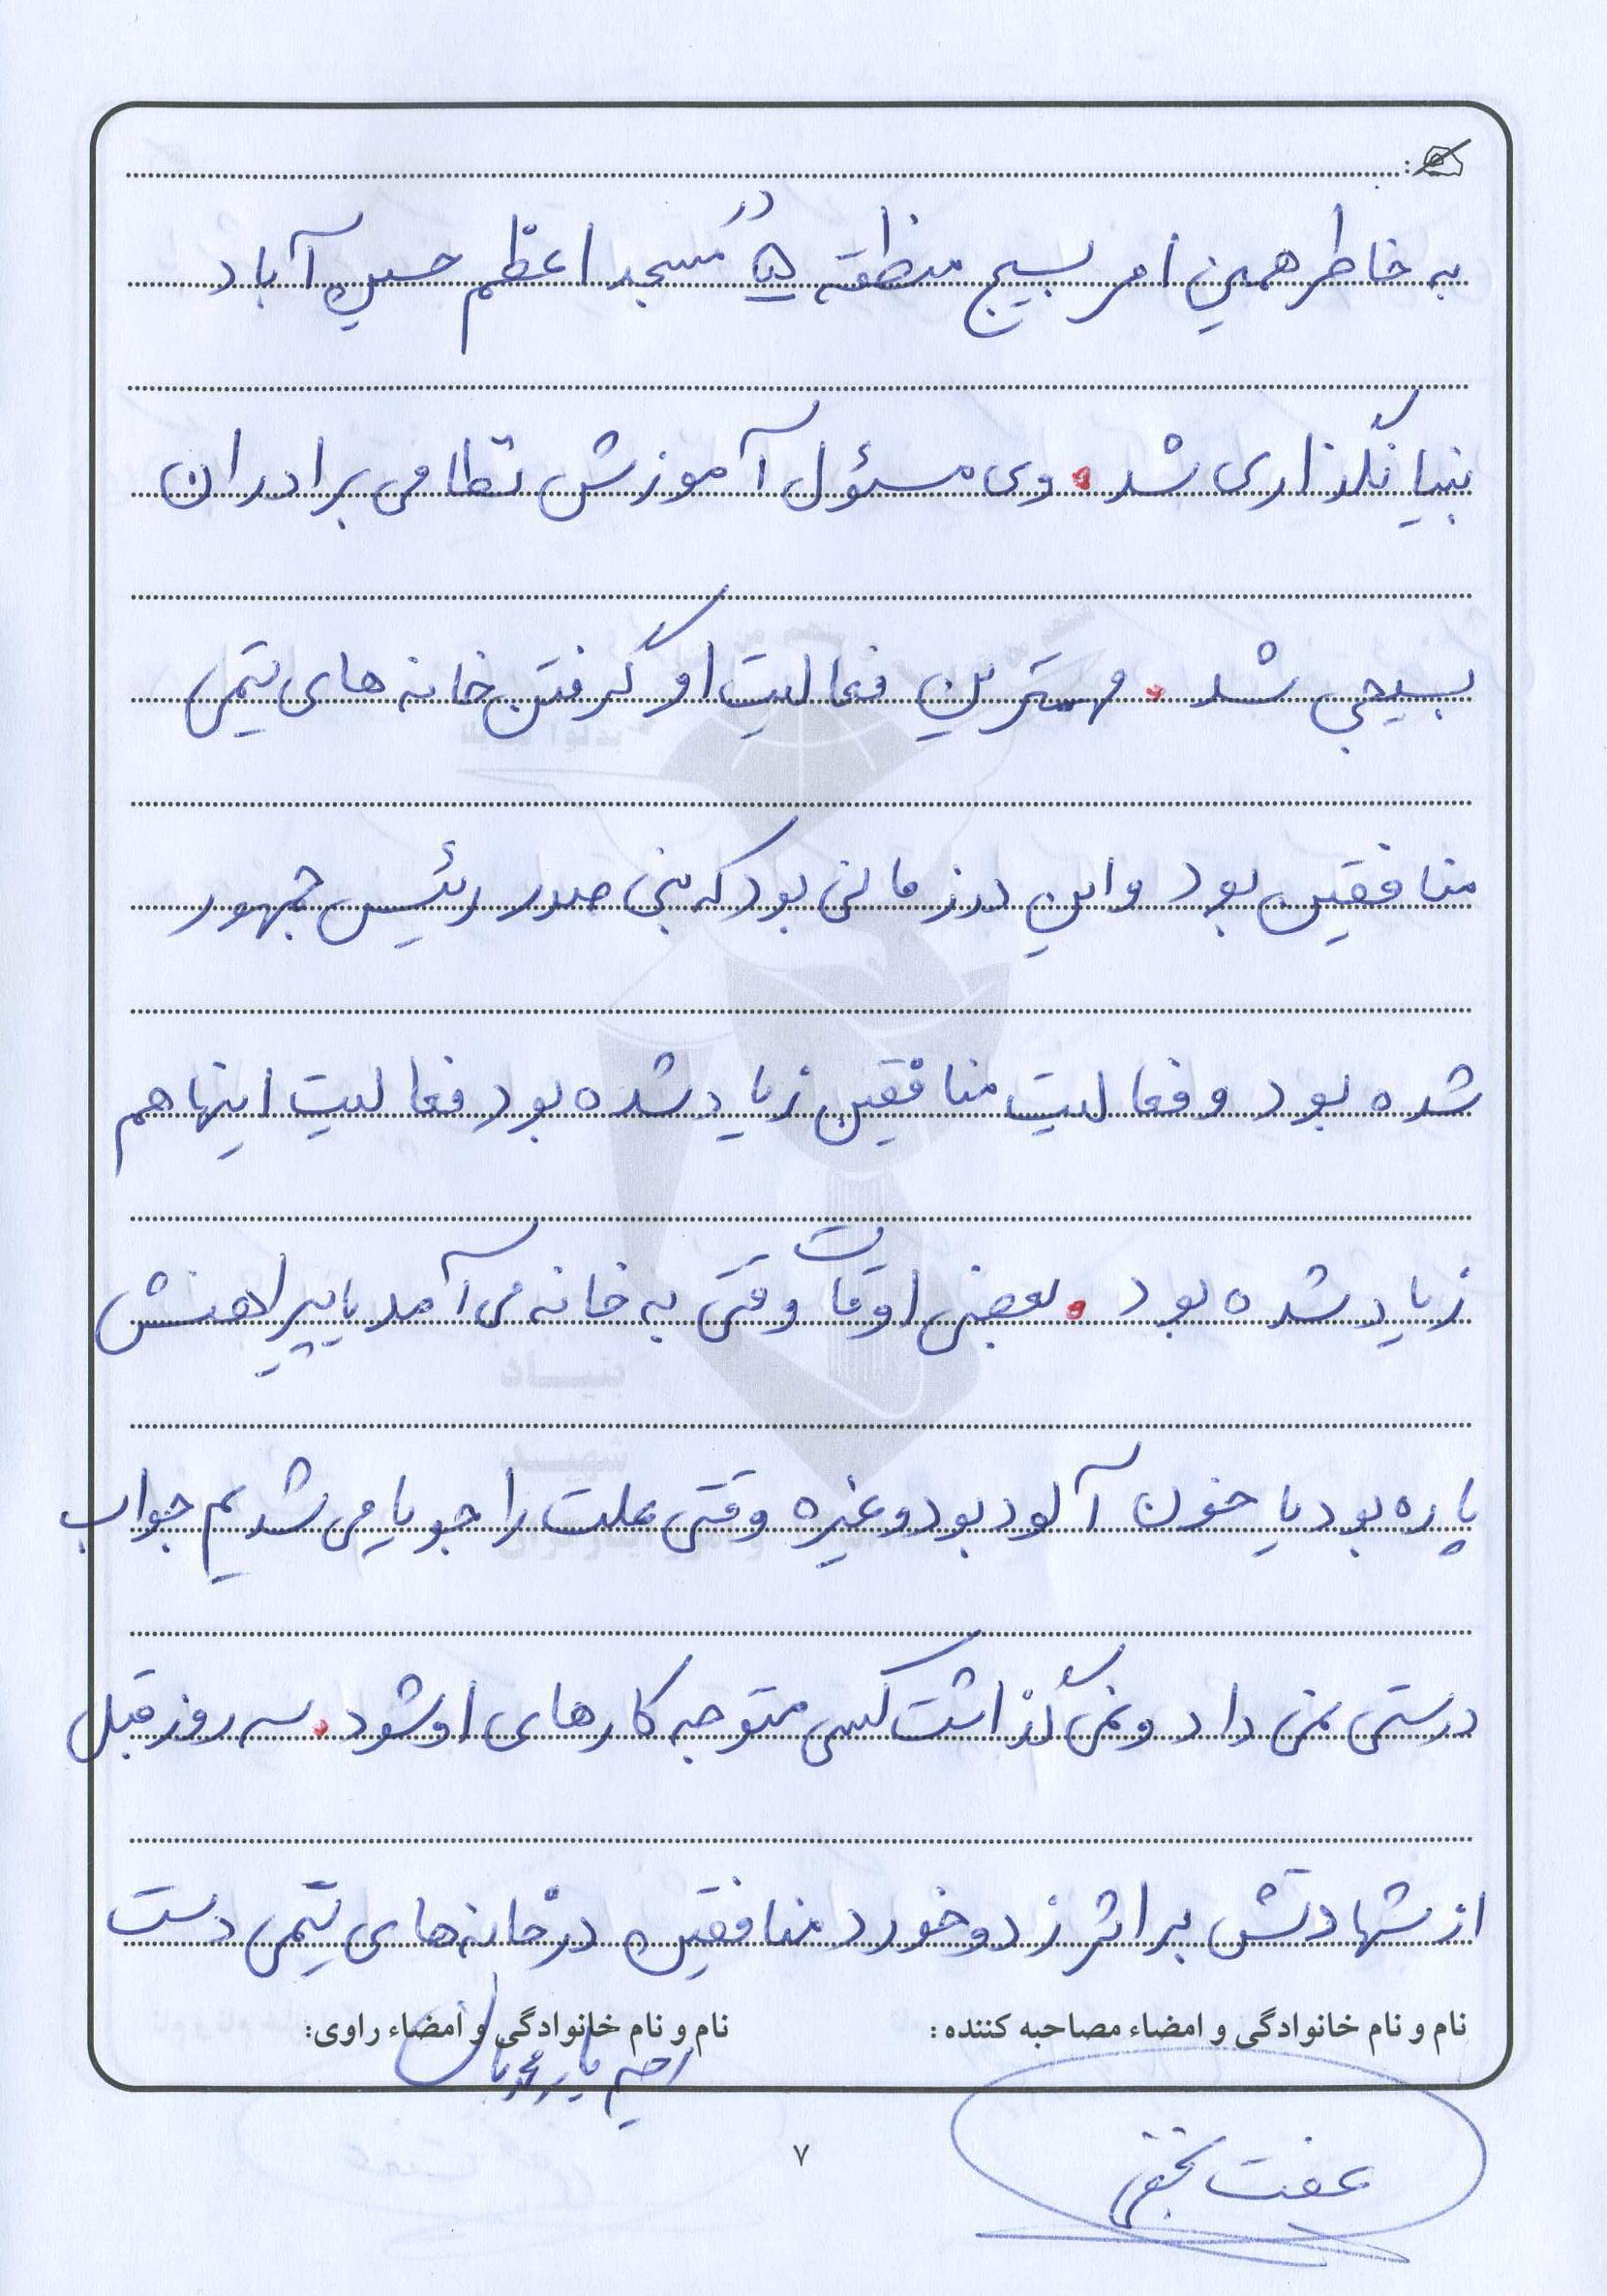 به خاطر همین امر بسیج منطقه ۵ در مسجد اعظم حسین آباد
بنیانگذاری شد. وی مسئول آموزش نظامی برادران
بسیجی شد. مهمترین فعالیت او گرفتن خانه های تیمی
منافقین بود و این در زمانی بود که بنی صدر رئیس جمهور
شده بود و فعالیت منافقین زیاد شده بود فعالیت اینها هم
زیاد شده بود. بعضی اوقات وقتی به خانه می آمد یا پیراهنش
پاره بود یا خون آلود بود و غیره وقتی علت را جویا می شدیم جواب
درستی نمی داد و نمی گذاشت کسی متوجه کارهای او شود. سه روز قبل
از شهادتش بر اثر زد و خورد منافقین در خانه های تیمی دست
نام و نام خانوادگی و امضاء مصاحبه کننده: نام و نام خانوادگی و امضاء راوی:
عفت نجفی
۷